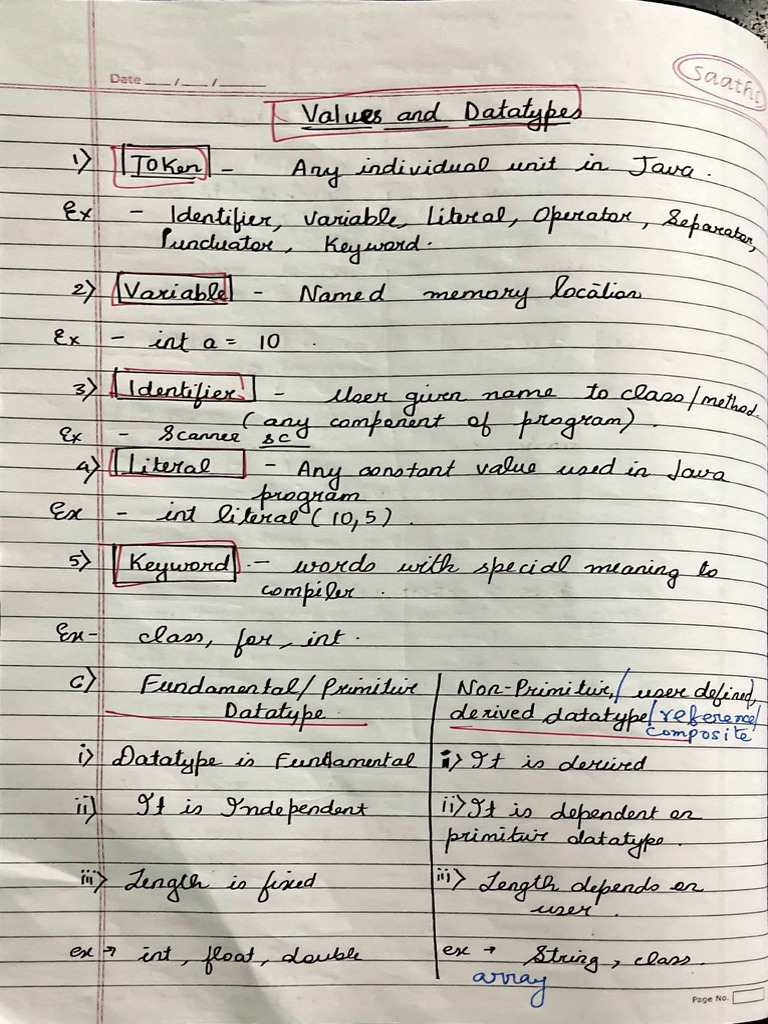 saathi
Date __/__/____
Values and Datatypes
1) Token - Any individual unit in Java.
Ex - Identifier, Variable, Literal, Operator, Separator,
Punduator, Keyword.
2) Variable - Named memory location
Ex - int a = 10.
3) Identifier - User given name to class/method.
(any component of program).
Ex - Scanner sc
4) Literal - Any constant value used in Java
program
Ex - int literal (10,5).
5) Keyword - words with special meaning to
compiler.
Ex - class, for, int.
6) Fundamental/Primitive
Datatype
i) Datatype is Fundamental
ii) It is Independent
iii) Length is fixed
ex → int, float, double
Non-Primitive/ user defined,
derived datatype/reference/
composite
i) It is derived
ii) It is dependent on
primitive datatype.
iii) Length depends on
user.
ex → String, class.
array
Page No.